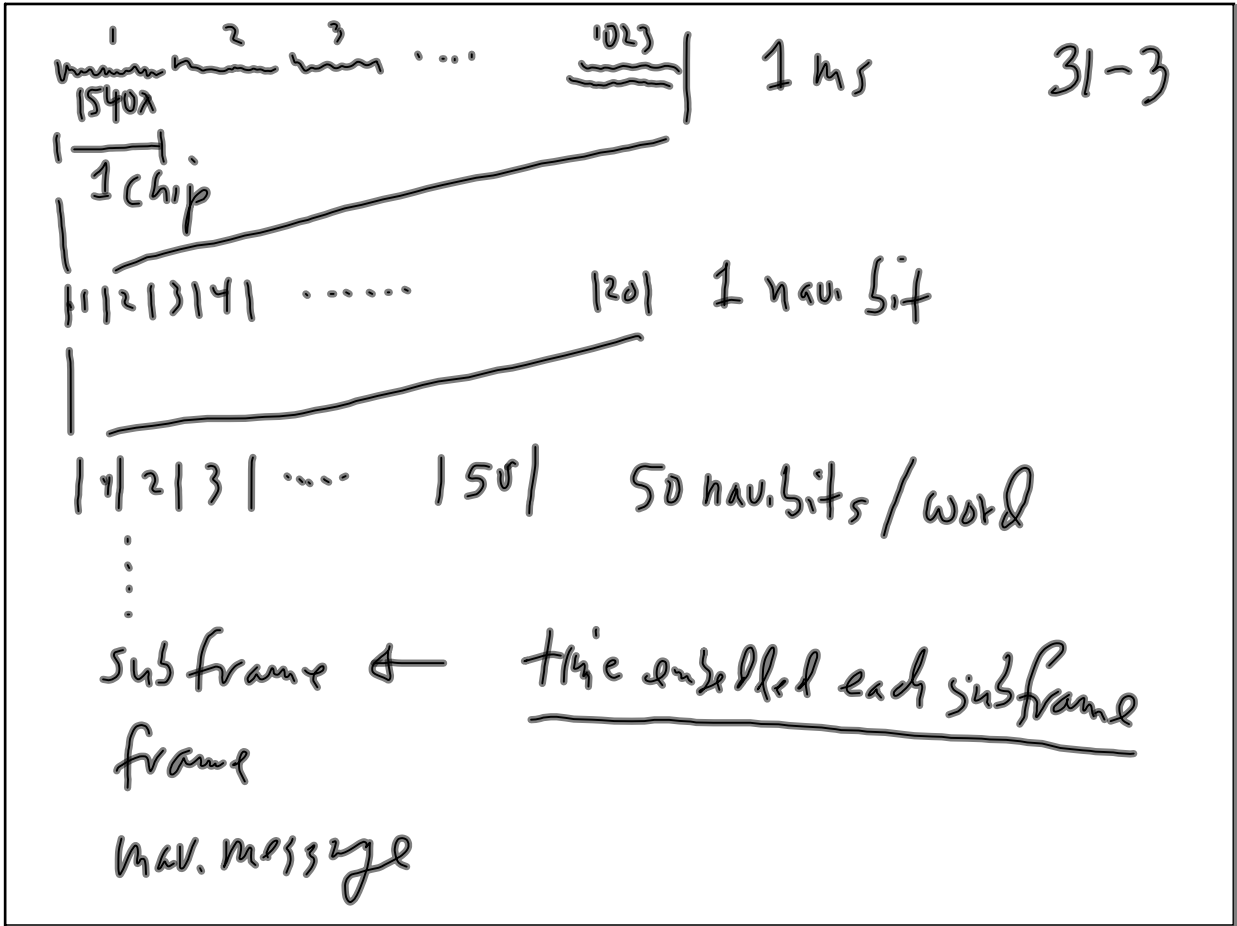 1 2 3 .... 1023 1 ms 31-3
1540λ
1 chip
|1|2|3|4| ...... |20| 1 nav. bit
|1|2|3| .... |50| 50 nav. bits / word
subframe ← time embedded each subframe
frame
nav. message